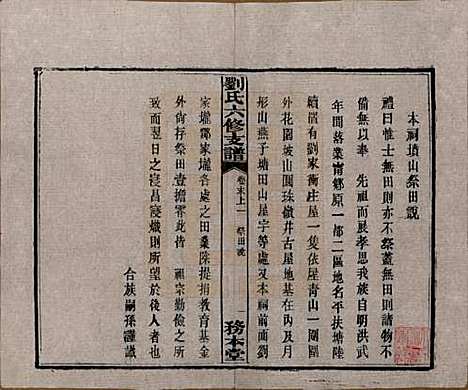 本祠墳山祭田說
禮曰惟士無田則亦不祭蓋無田則諸物不
備無以奉 先祖而展孝思我族自明洪武
年間落業甯鄉原一都二區地名平扶塘陸
續置有劉家衝庄屋一隻依屋青山一團團
外花園坡山圓珠嶺井古屋地基在內又人
形山燕子塘田山屋宇等處本祠前面劉
劉氏六修支譜
卷末上 祭田說
一
務本堂
家壋鄒家壋各處之田業除提捐教育基金
外尙存祭田壹擔零此皆 祖宗勤儉之所
致而翌日之寖昌寖熾則所望於後人者也
合族嗣孫謹識